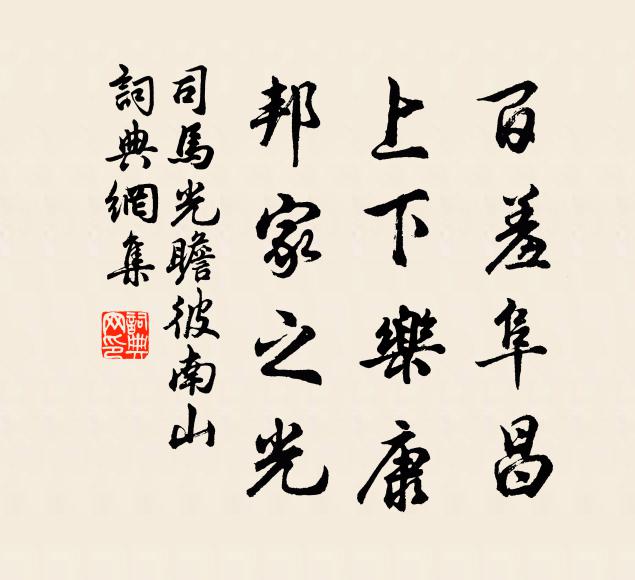 百羞阜昌
上下樂康
邦家之光
司馬光瞻彼南山
詞典網集
詞典
网印